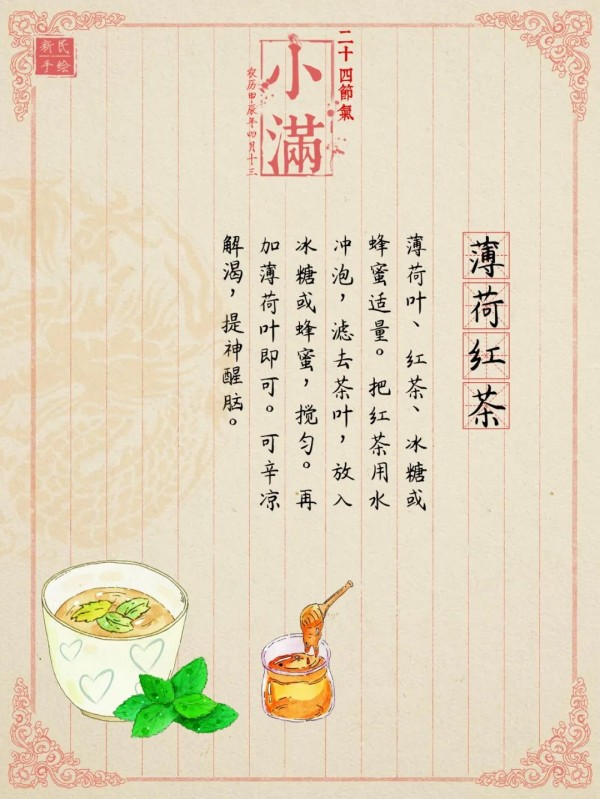 新氏
手绘
二十四節氣
小滿
农历甲辰年四月十三
薄荷红茶
薄荷叶、红茶、冰糖或
蜂蜜适量。把红茶用水
冲泡，滤去茶叶，放入
冰糖或蜂蜜，搅匀。再
加薄荷叶即可。可辛凉
解渴，提神醒脑。